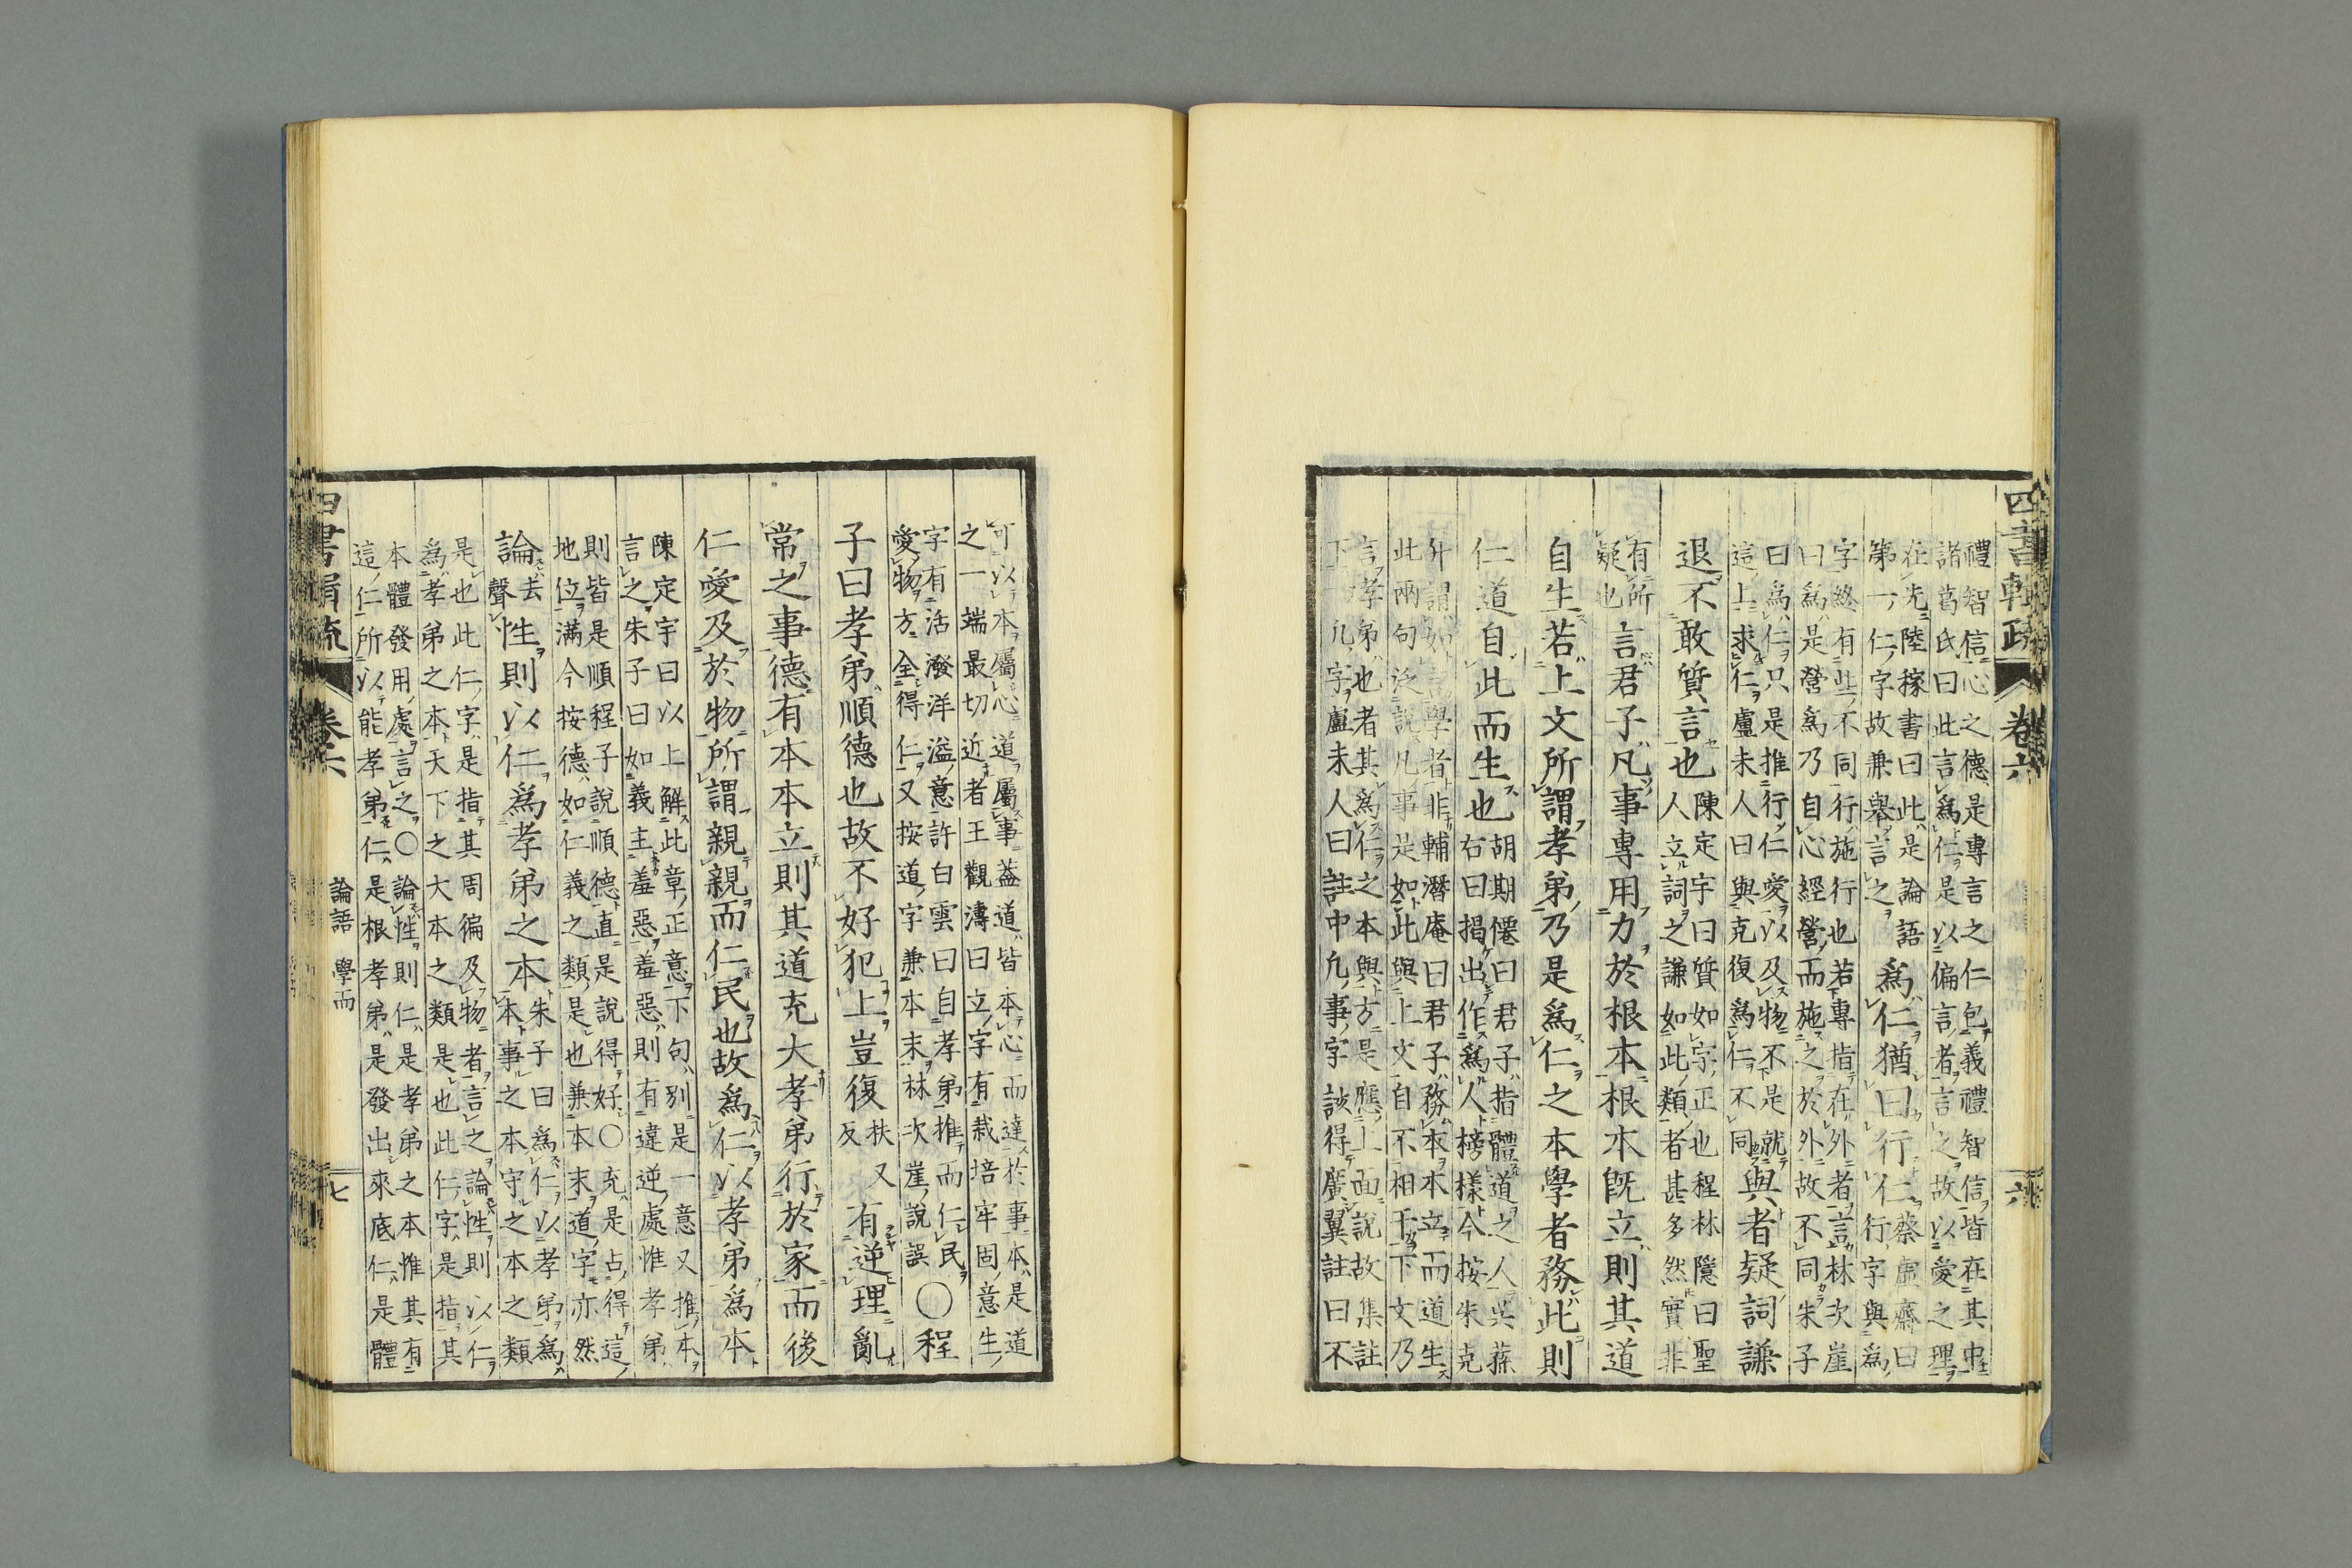 四書輯疏 卷六 六
禮智信心之德是專言之仁包義禮智信皆在其中
諸葛氏曰此言爲仁是以偏言者言之故以愛之理
在先陸稼書曰此是論語
第一仁字故兼舉言之
爲仁猶曰行仁
蔡虛齋曰
行字與爲
字終有些不同行施行也若專指在外者言林次崖
曰爲是營爲乃自心經營而施之於外故不同朱子
曰爲仁只是推行仁愛以及物不是就
這上求仁盧未人曰與克復爲仁不同
與者疑詞謙
退不敢質言也
陳定宇曰質如字正也程林隱曰聖
人立詞之謙如此類者甚多然實非
有所
疑也
言君子凡事專用力於根本根本旣立則其道
自生若上文所謂孝弟乃是爲仁之本學者務此則
仁道自此而生也
胡期僊曰君子指體道之人吳蓀
右曰揭出作爲人榜樣今按朱克
升謂如言學者非輔潛庵曰君子務本本立而道生
此兩句泛說凡事是如此與上文自不相干下文乃
言孝弟也者其爲仁之本與方是應上面說故集註
下一凡字盧未人曰註中凡事字該得廣翼註曰不
可以本屬心道屬事蓋道皆本心而達於事本是道
之一端最切近者王觀濤曰立字有栽培牢固意生
字有活潑洋溢意許白雲曰自孝弟推而仁民
愛物方全得仁又按道字兼本末林次崖說誤
○程
子曰孝弟順德也故不好犯上豈復
扶又
反
有逆理亂
常之事德有本本立則其道充大孝弟行於家而後
仁愛及於物所謂親親而仁民也故爲仁以孝弟爲本
陳定宇曰以上解此章正意下句別是一意又推本
言之朱子曰如義主羞惡羞惡則有違逆處惟孝弟
則皆是順程子說順德直是說得好○充是占得這
地位滿今按德如仁義之類是也兼本末道字亦然
論
去
聲
性則以仁爲孝弟之本
朱子曰爲仁以孝弟爲
本事之本守之本之類
是也此仁字是指其周徧及物者言之論性則以仁
爲孝弟之本天下之大本之類是也此仁字是指其
本體發用處言之○論性則仁是孝弟之本惟其有
這仁所以能孝弟仁是根孝弟是發出來底仁是體
四書輯疏 卷六 論語 學而 七